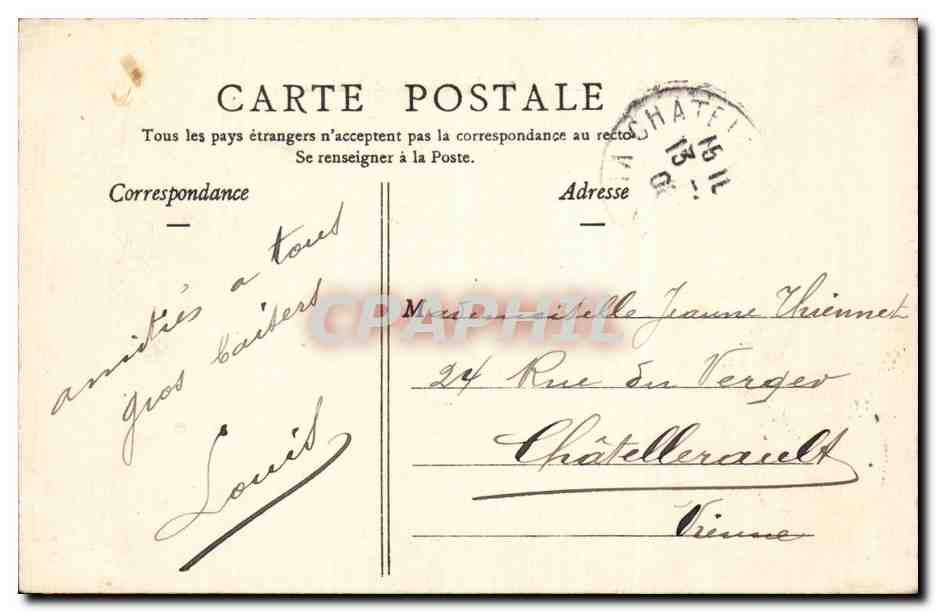 CARTE POSTALE
Tous les pays étrangers n'acceptent pas la correspondance au recto
Se renseigner à la Poste.
Correspondance
Adresse
CHATEL
15
13
amitiés a tous
gros baisers
Louis
CPAPHIL
Mademoiselle Jeanne Thiennet
24 Rue du Verger
Châtellerault
Vienne